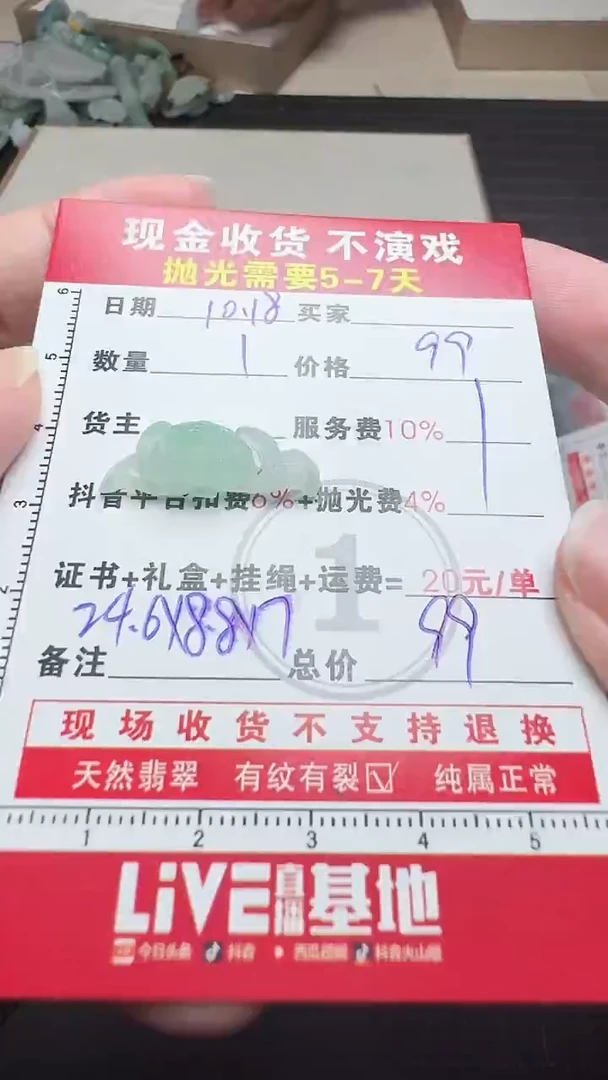 现金收货 不演戏
抛光需要5-7天
日期 10.18 买家
数量 1 价格 99
货主 服务费10%
抖音平台扣费6%+抛光费4%
证书+礼盒+挂绳+运费= 20元/单
24.6X8.8X7
备注 总价 99
1
现场收货不支持退换
天然翡翠 有纹有裂☑ 纯属正常
LIVE直播基地
今日头条 抖音 西瓜视频 抖音火山版